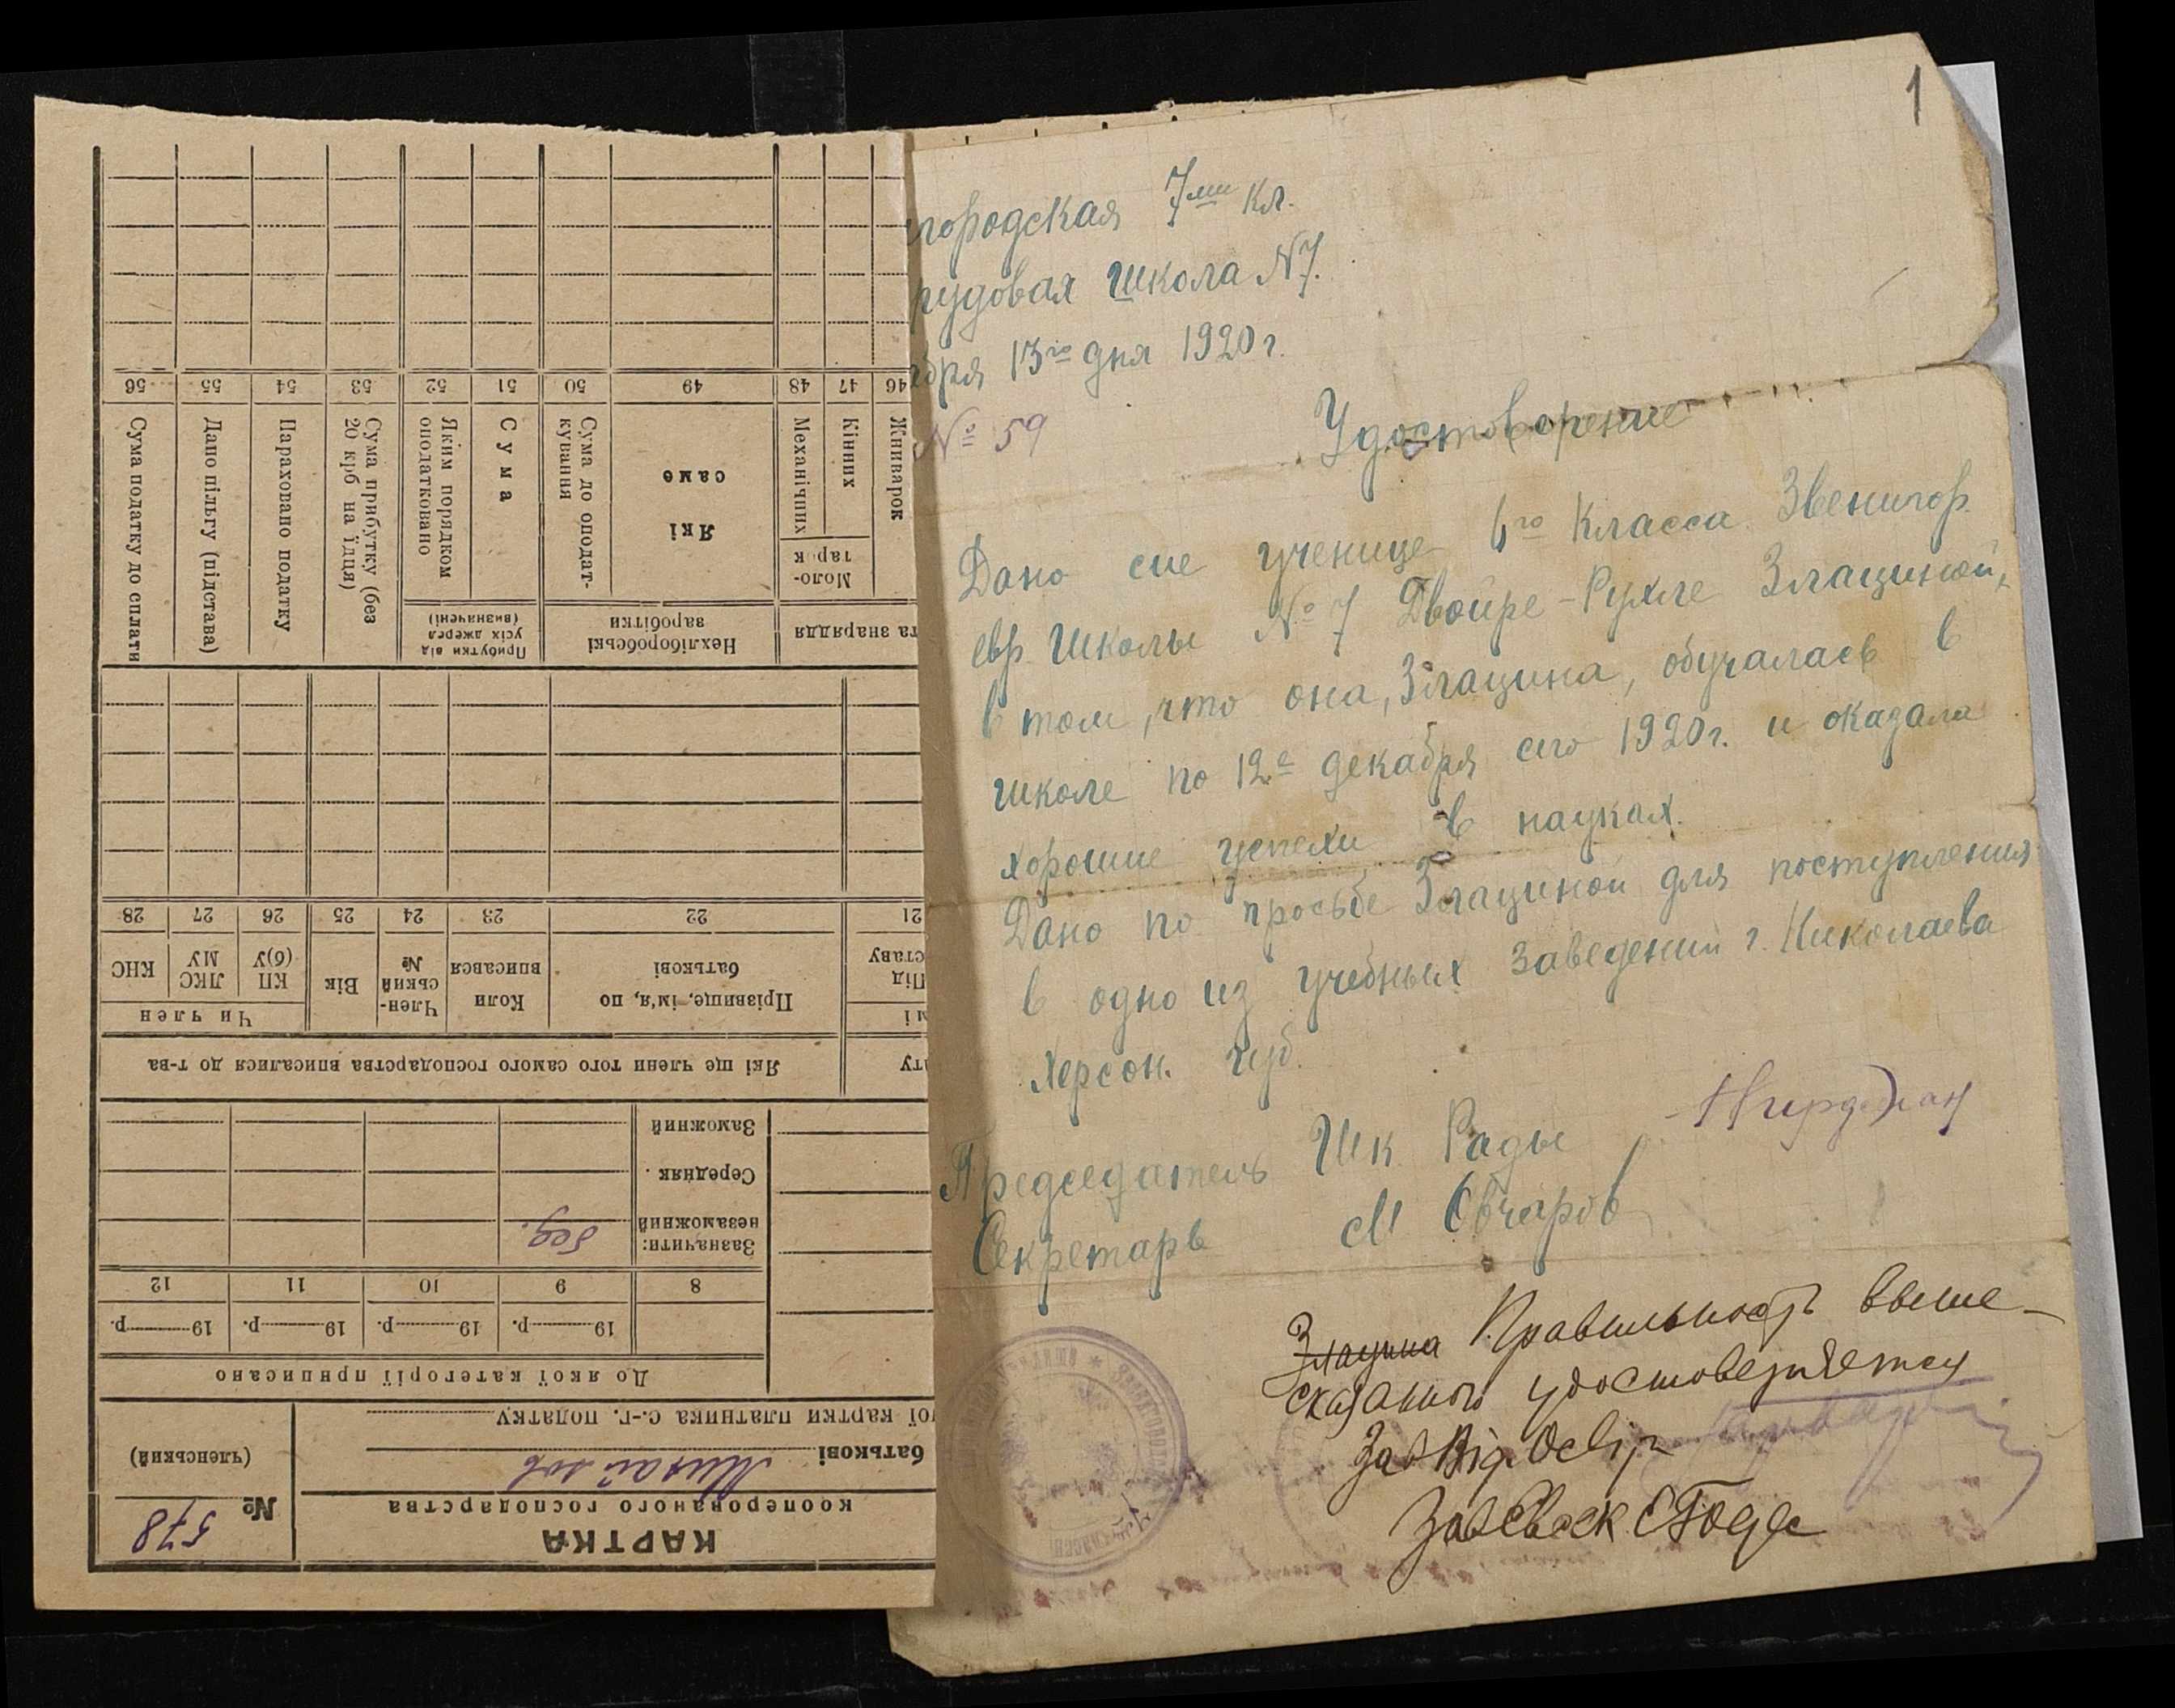 1
городская 7ми кл.
рудовая школа N7.
бря 13го дня 1920 г.
№ 59
Удостоверение
Дано сие ученице 6го класса Звенигор.
евр. школы № 7 Двойре-Рухле Злациной,
в том, что она, Злацина, обучалась в
школе по 12е декабря сего 1920 г. и оказала
хорошие успехи в науках.
Дано по просьбе Злациной для поступления
в одно из учебных заведений г. Николаева
Херсон. губ.
Председатель Шк. Рады
Секретарь М Овчаров
Злацина Правильность выше-
сказанного удостоверяется
Зав Від. Осв
КАРТКА
кооперованого господарства
№ 578
(членський)
батькові Михайлов
ої картки платника с.-г. податку
До якої категорії приписано
19 р. 19 р. 19 р. 19 р.
8 9 10 11 12
Зазначити:
незаможний бед.
Середняк
Заможний
ату
Які ще члени того самого господарства вписалися до т-ва
мі
Під
ставу
Прізвище, ім'я, по батькові
Коли вписався
Член-ський №
Вік
Чи член
КП (б)У
ЛКС МУ
КНС
21 22 23 24 25 26 27 28
та знаряддя
Нехліборобські заробітки
Прибутки від усіх джерел (визначені)
Жниварок
Моло-тарок
Кінних
Механічних
Які саме
Сума до оподат-кування
Сума
Яким порядком оподатковано
Сума прибутку (без 20 крб на їдця)
Нараховано податку
Дано пільгу (підстава)
Сума податку до сплати
46 47 48 49 50 51 52 53 54 55 56